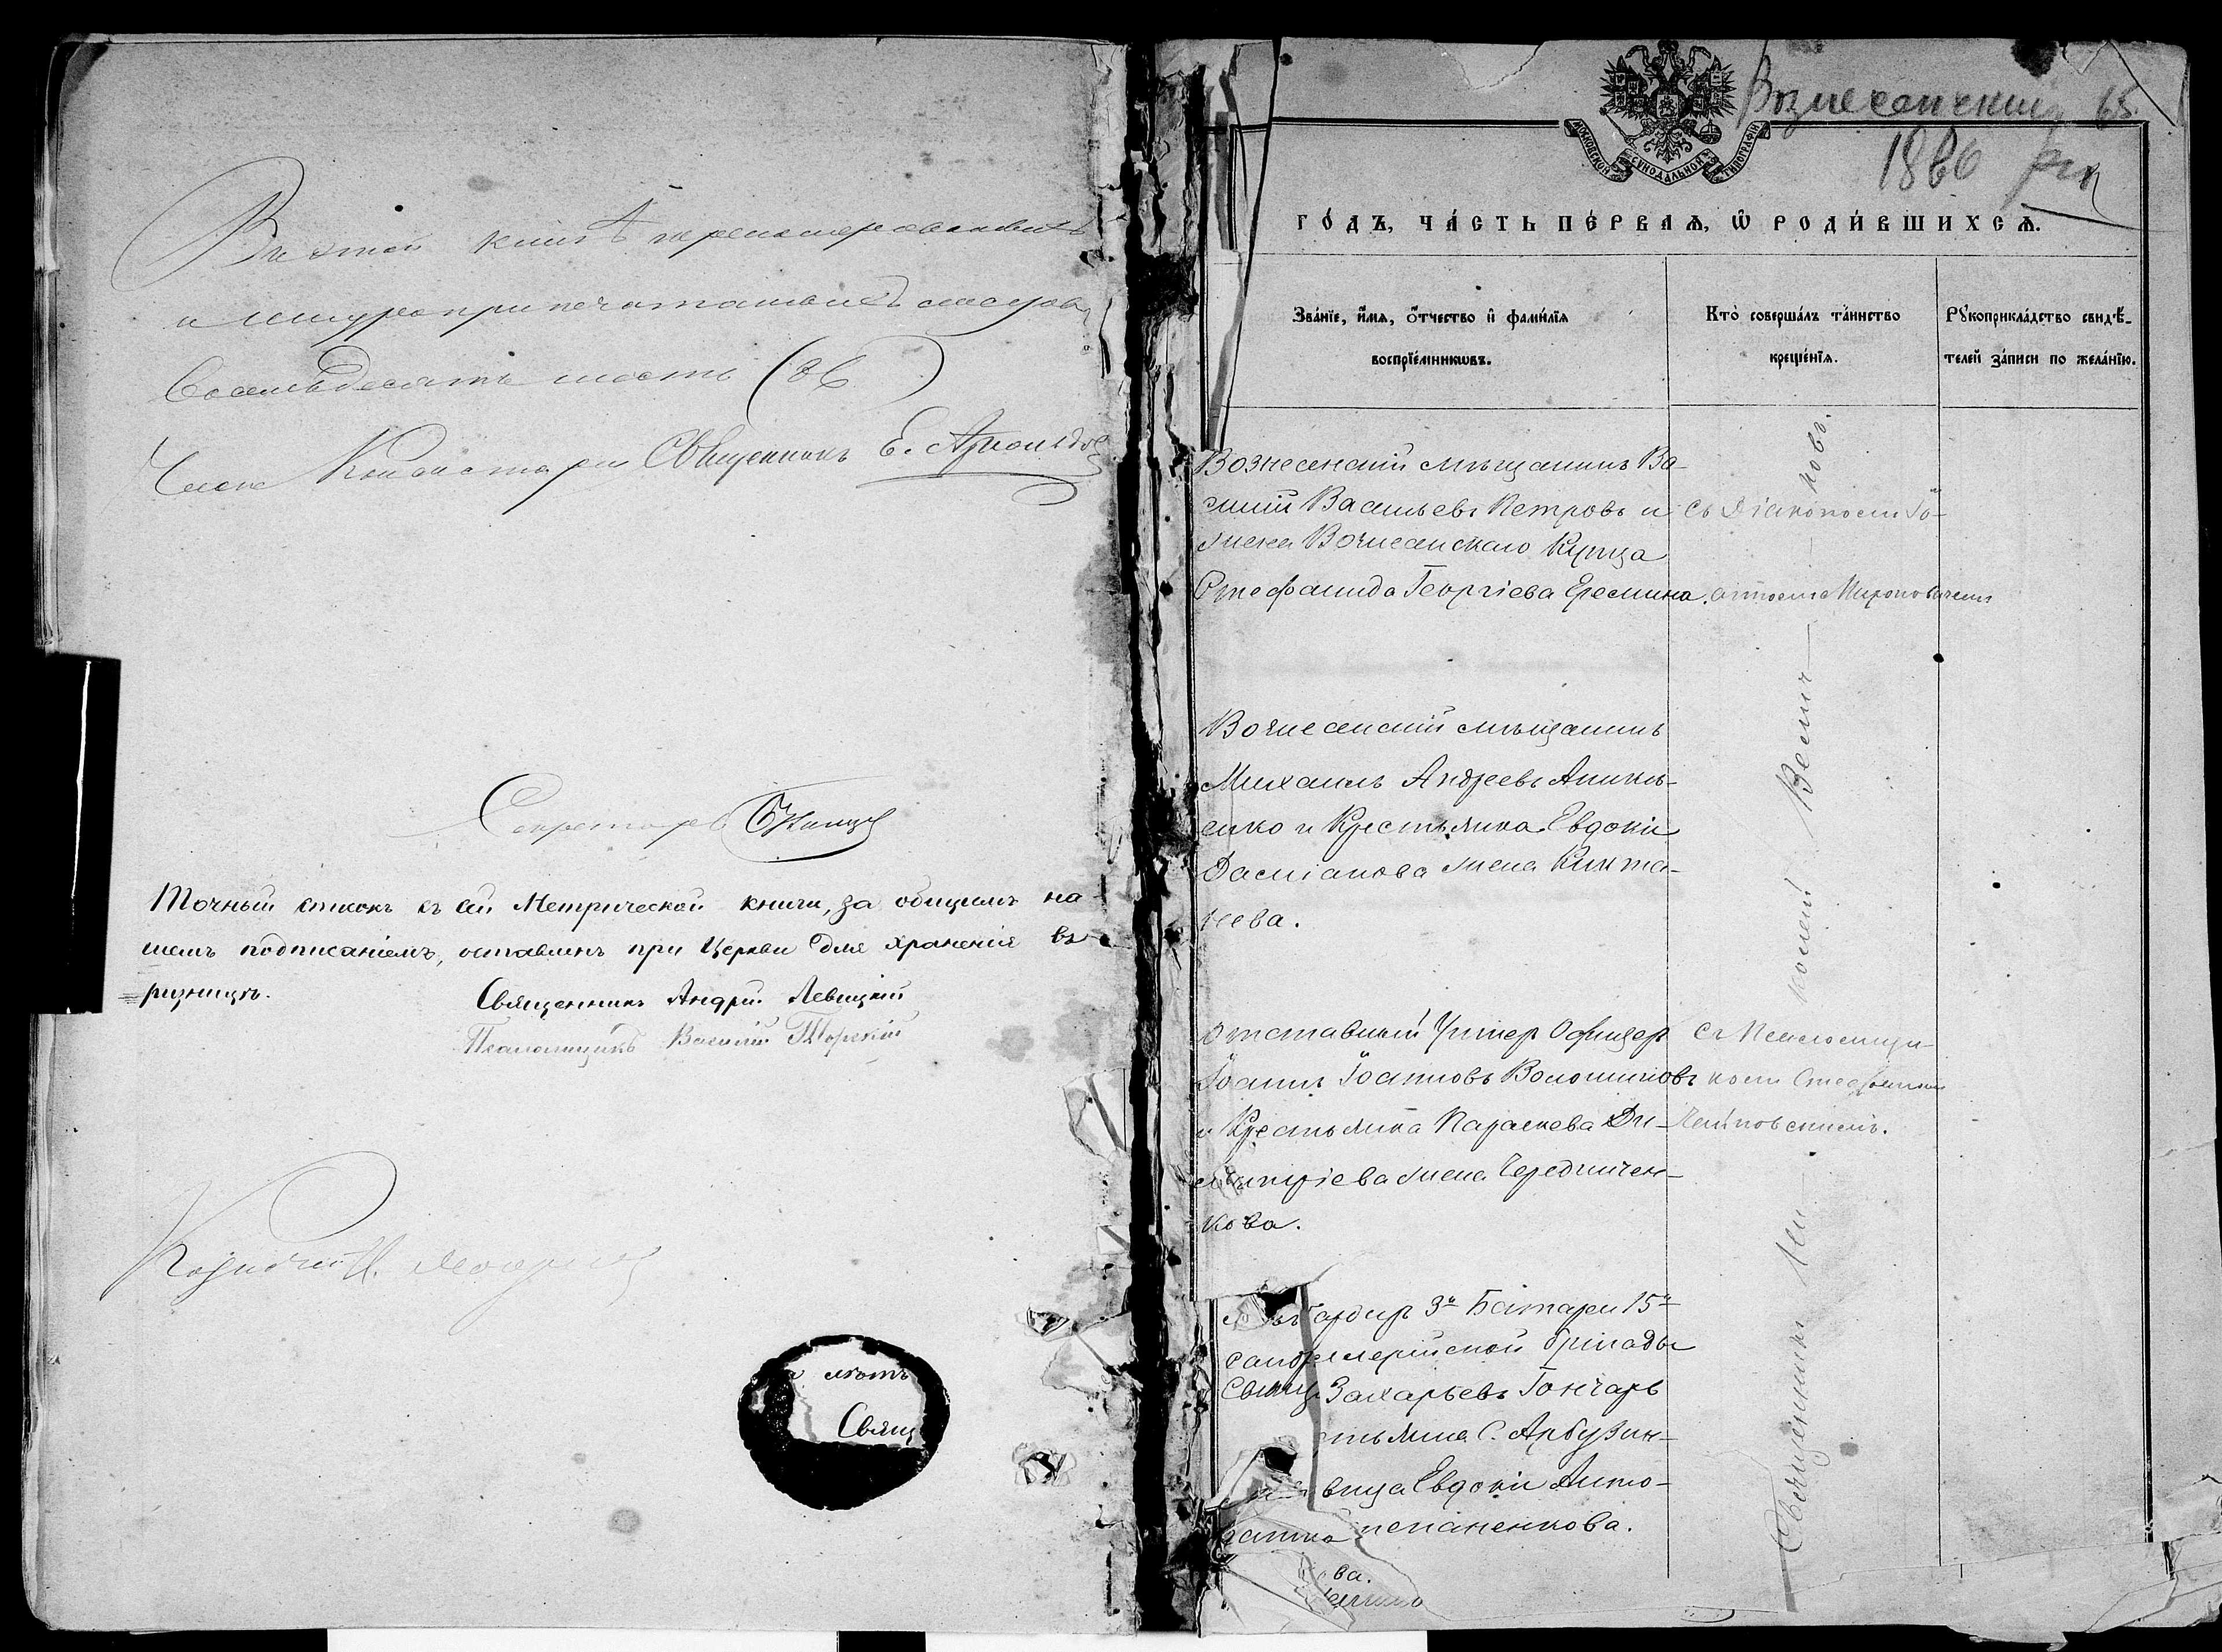 В этой книгѣ перенумерованныхъ
и шнуроприпечатанныхъ листовъ
восемьдесятъ шесть (86)
Членъ Консисторіи Священникъ Е. Арнольдов
Секретарь
Точный списокъ съ сей Метрической книги, за общимъ на-
шемъ подписаніемъ, оставленъ при Церкви для храненія въ
ризницѣ.
Священникъ Андрій Левицкій
Псаломщикъ Василій Торскій
лѣтъ
Свящ
Вознесенскій 65.
1886
МОСКОВСКОЙ СѴНОДАЛЬНОЙ ТИПОГРАФІИ
ГО́ДЪ, ЧА́СТЬ ПЕ́РВАѦ, Ѿ РОДИ́ВШИХСѦ.
Зва́нїе, и҆́мѧ, ѻ҆́тчество и҆ фами́лїѧ
воспрїе́мникѡвъ.
Кто̀ соверша́лъ та́инство
креще́нїѧ.
Рꙋкоприкла́дство свидѣ́-
телей за́писи по жела́нїю.
Вознесенскій мѣщанинъ Ва-
силій Васильевъ Петровъ и
жена Вознесенскаго Купца
Стефанида Георгіева Еремина.
съ Діакономъ Іо-
анномъ Мироновичемъ
Вознесенскій мѣщанинъ
Михаилъ Андреевъ Аникѣ-
енко и Крестьянка Евдокія
Даміанова жена Кихта-
нева.
Отставный Унтеръ Офицеръ
Іоаннъ Іоанновъ Волошиновъ
и Крестьянка Параскева Ди-
митріева жена Чередничен-
кова.
съ Псаломщи-
комъ Стефаномъ
рдиръ 3й Батареи 15й
артиллерійской бригады
Захарьевъ Гончаръ
стьянка С. Арбузин-
вица Евдокія Анто-
Степаненкова.
ва.
Священникъ